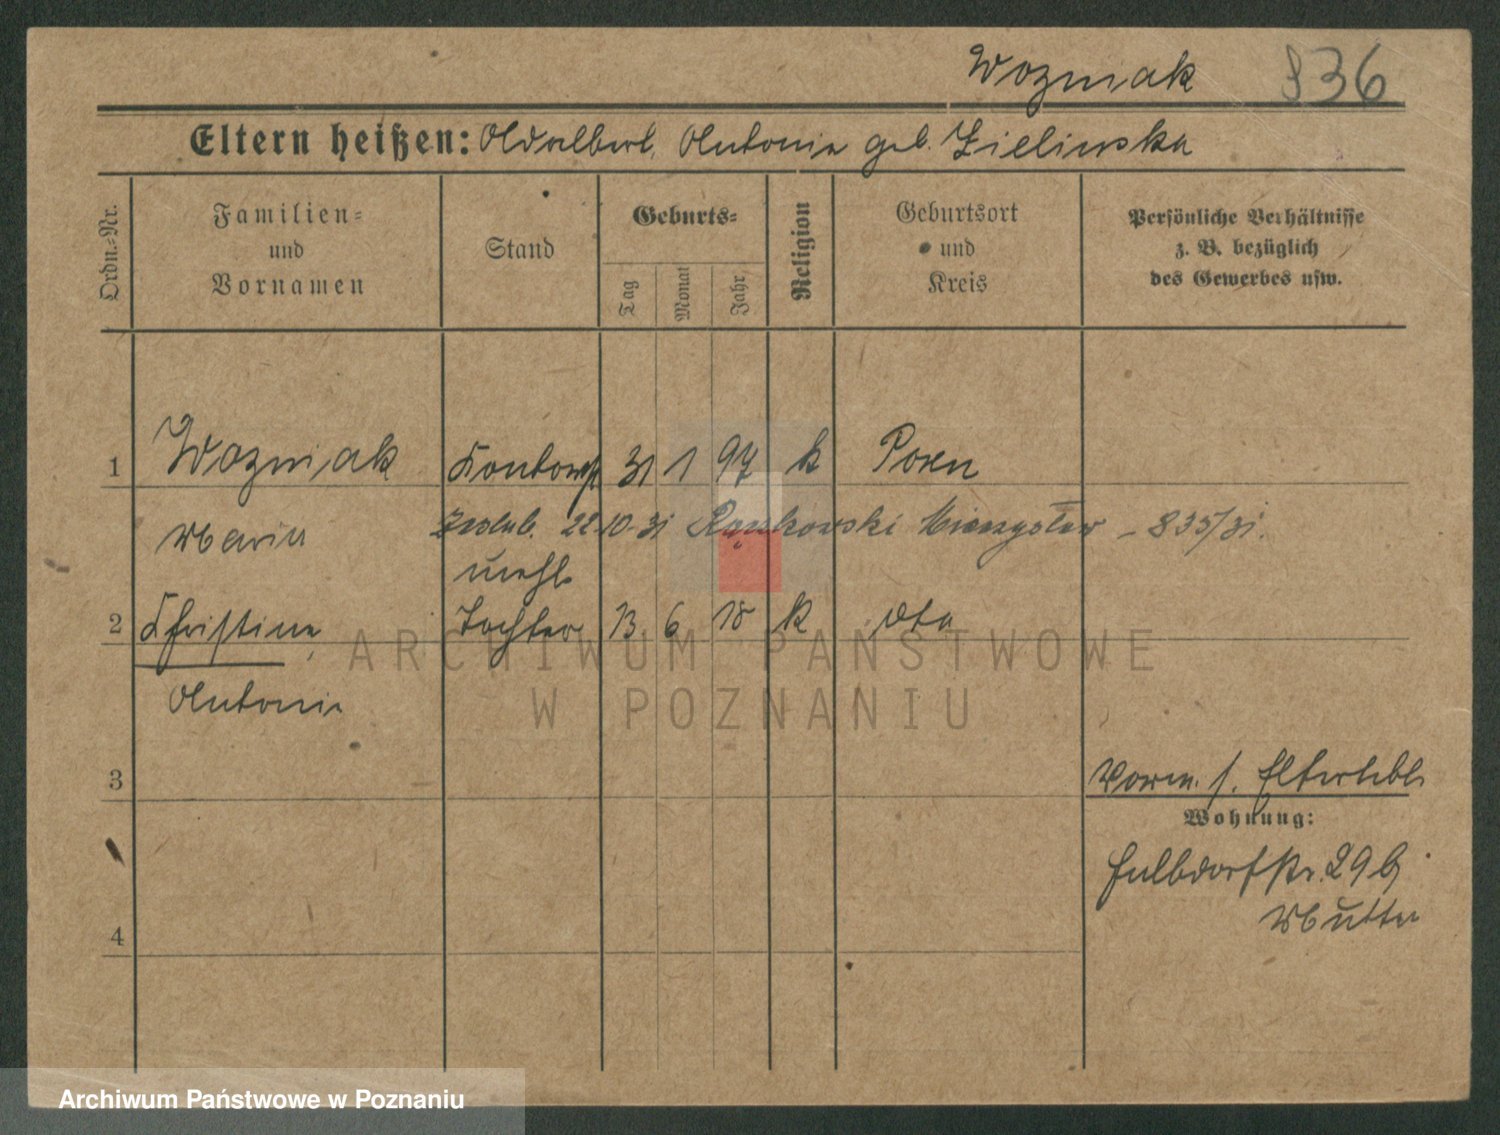 Wozniak 836
Eltern heißen: Adalbert, Antonie geb. Zielinska
Ordn.-Nr.
Familien-
und
Vornamen
Stand
Geburts-
Tag
Monat
Jahr
Religion
Geburtsort
und
Kreis
Persönliche Verhältnisse
z. B. bezüglich
des Gewerbes usw.
1 Wozniak Kontorist 31 1 97 k Posen
Maria
Zaślub. 22-10-31 Mieczysław - 835/31.
unehl.
2 Christine Tochter 13 6 18 k dto
Antonie
3
Vorm. s. Elternbl.
Wohnung:
str. 29 b
Mutter
4
ARCHIWUM PAŃSTWOWE
W POZNANIU
Archiwum Państwowe w Poznaniu